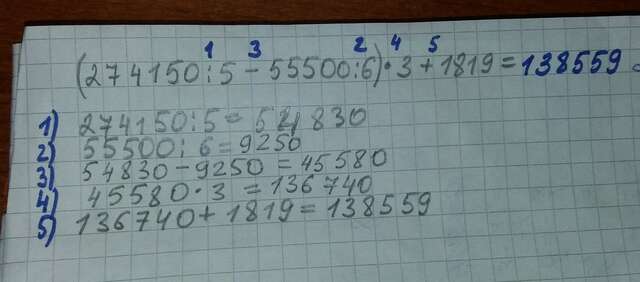 1 3 2 4 5
(274150:5-55500:6)·3+1819=138559
1) 274150:5=54830
2) 55500:6=9250
3) 54830-9250=45580
4) 45580·3=136740
5) 136740+1819=138559